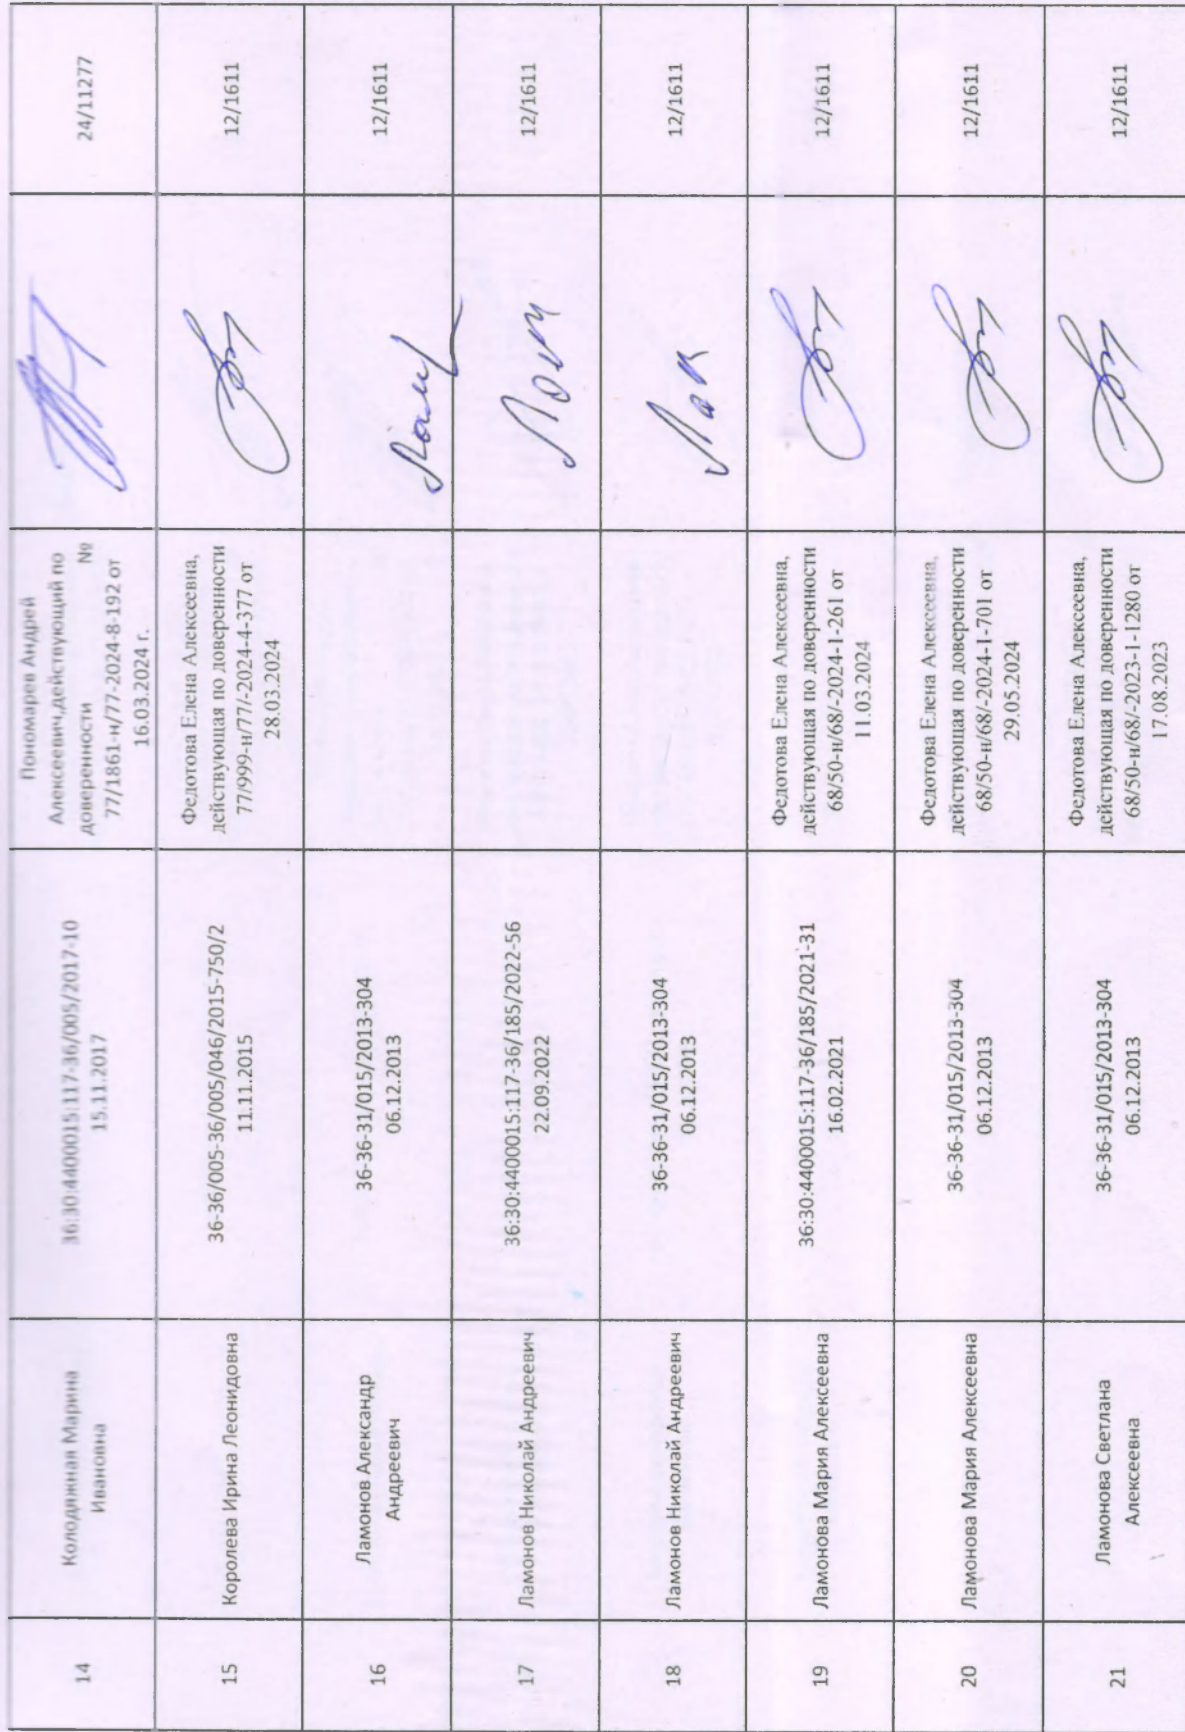 14
Колодяжная Марина
Ивановна
36:30:4400015:117-36/005/2017-10
15.11.2017
Пономарев Андрей
Алексеевич,действующий по
доверенности №
77/1861-н/77-2024-8-192 от
16.03.2024 г.
24/11277
15
Королева Ирина Леонидовна
36-36/005-36/005/046/2015-750/2
11.11.2015
Федотова Елена Алексеевна,
действующая по доверенности
77/999-н/77/-2024-4-377 от
28.03.2024
12/1611
16
Ламонов Александр
Андреевич
36-36-31/015/2013-304
06.12.2013
12/1611
17
Ламонов Николай Андреевич
36:30:4400015:117-36/185/2022-56
22.09.2022
12/1611
18
Ламонов Николай Андреевич
36-36-31/015/2013-304
06.12.2013
12/1611
19
Ламонова Мария Алексеевна
36:30:4400015:117-36/185/2021-31
16.02.2021
Федотова Елена Алексеевна,
действующая по доверенности
68/50-н/68/-2024-1-261 от
11.03.2024
12/1611
20
Ламонова Мария Алексеевна
36-36-31/015/2013-304
06.12.2013
Федотова Елена Алексеевна,
действующая по доверенности
68/50-н/68/-2024-1-701 от
29.05.2024
12/1611
21
Ламонова Светлана
Алексеевна
36-36-31/015/2013-304
06.12.2013
Федотова Елена Алексеевна,
действующая по доверенности
68/50-н/68/-2023-1-1280 от
17.08.2023
12/1611